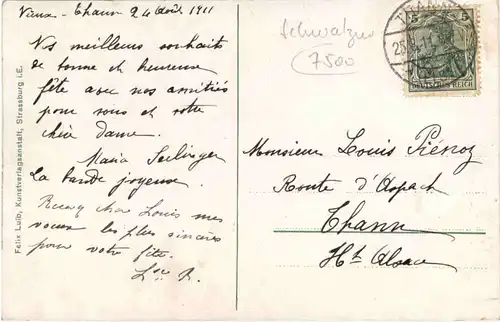 Vieux-Thann 24 Août 1911
Nos meilleurs souhaits
de bonne et heureuse
fête avec nos amitiés
pour vous et votre
chère dame.
Maria
La bande joyeuse
Louis mes
voeux les plus sincères
pour votre fête.
R.
Felix Luib, Kunstverlagsanstalt, Strassburg i.E.
7500
5 5
DEUTSCHES REICH
Monsieur Louis Piénoz
Route d'Aspach
Thann
Ht Alsace